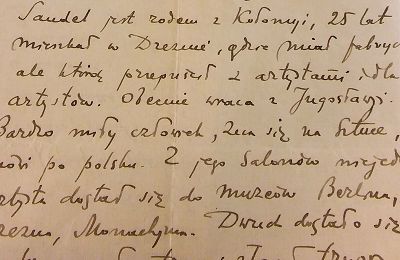 Sandel jest rodem z Kołomyi, 25 lat
mieszkał w Dreźnie, gdzie miał fabryc
ale którą przepuścił z artystami i dla
artystów. Obecnie wraca z Jugosławji.
Bardzo miły człowiek, zna się na sztuce,
mówi po polsku. Z jego salonów niejed
artysta dostał się do muzeów Berlina,
rezna, Monachjum. Dwuch dostało się